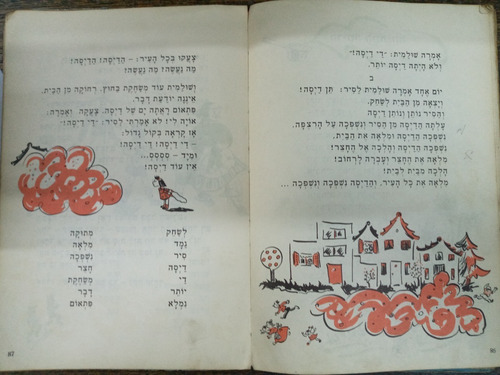 אָמְרָה שׁוּלַמִית: "דַּי דַּיְסָה!"
וְלֹא הָיְתָה דַּיְסָה יוֹתֵר.
ב
יוֹם אֶחָד אָמְרָה שׁוּלַמִית לַסִּיר: תֵּן דַּיְסָה!
וְיָצְאָה מִן הַבַּיִת לְשַׂחֵק.
וְהַסִּיר נוֹתֵן וְנוֹתֵן דַּיְסָה
עָלְתָה הַדַּיְסָה מִן הַסִּיר וְנִשְׁפְּכָה עַל הָרִצְפָּה.
נִשְׁפְּכָה הַדַּיְסָה וּמִלְּאָה אֶת הַבַּיִת.
נִשְׁפְּכָה הַדַּיְסָה וְהָלְכָה אֶל הֶחָצֵר!
מִלְּאָה אֶת הֶחָצֵר וְעָבְרָה לָרְחוֹב!
הָלְכָה מִבַּיִת לְבַיִת!
מִלְּאָה אֶת כָּל הָעִיר, וְהַדַּיְסָה נִשְׁפְּכָה וְנִשְׁפְּכָה ...
צָעֲקוּ בְּכָל הָעִיר: – הַדַּיְסָה! הַדַּיְסָה!
מַה נַּעֲשֶׂה! מַה נַּעֲשֶׂה!
וְשׁוּלַמִית עוֹד מְשַׂחֶקֶת בַּחוּץ, רְחוֹקָה מִן הַבַּיִת.
אֵינֶנָּה יוֹדַעַת דָּבָר.
פִּתְאוֹם רָאֲתָה יָם שֶׁל דַּיְסָה. צָעֲקָה וְאָמְרָה:
אוֹיָה לִי! לֹא אָמַרְתִּי לַסִּיר: "דַּי דַּיְסָה!"
אָז קָרְאָה בְּקוֹל גָּדוֹל:
– דַּי דַּיְסָה! דַּי דַּיְסָה!
וּמִיָּד – סססס...
אֵין עוֹד דַּיְסָה!
לְשַׂחֵק מְתוּקָה
גַּמָּד מִלְּאָה
סִיר נִשְׁפְּכָה
דַּיְסָה חָצֵר
דַּי מְשַׂחֶקֶת
יוֹתֵר דָּבָר
נִמְלָא פִּתְאוֹם
67